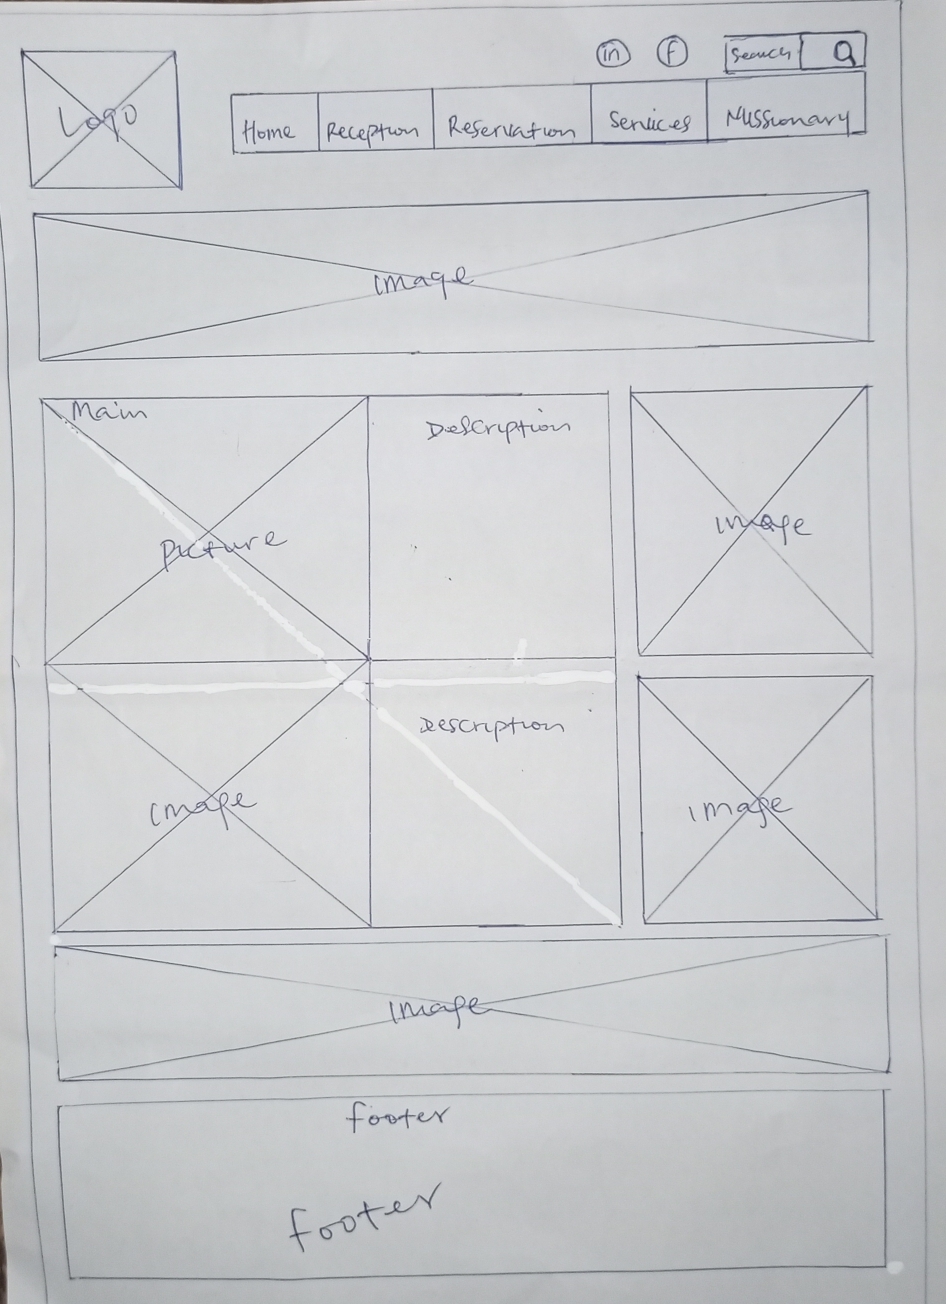 in f Search
Logo
Home Reception Reservation Services Missionary
image
Main
Picture
Description
image
image
Description
image
image
footer
footer